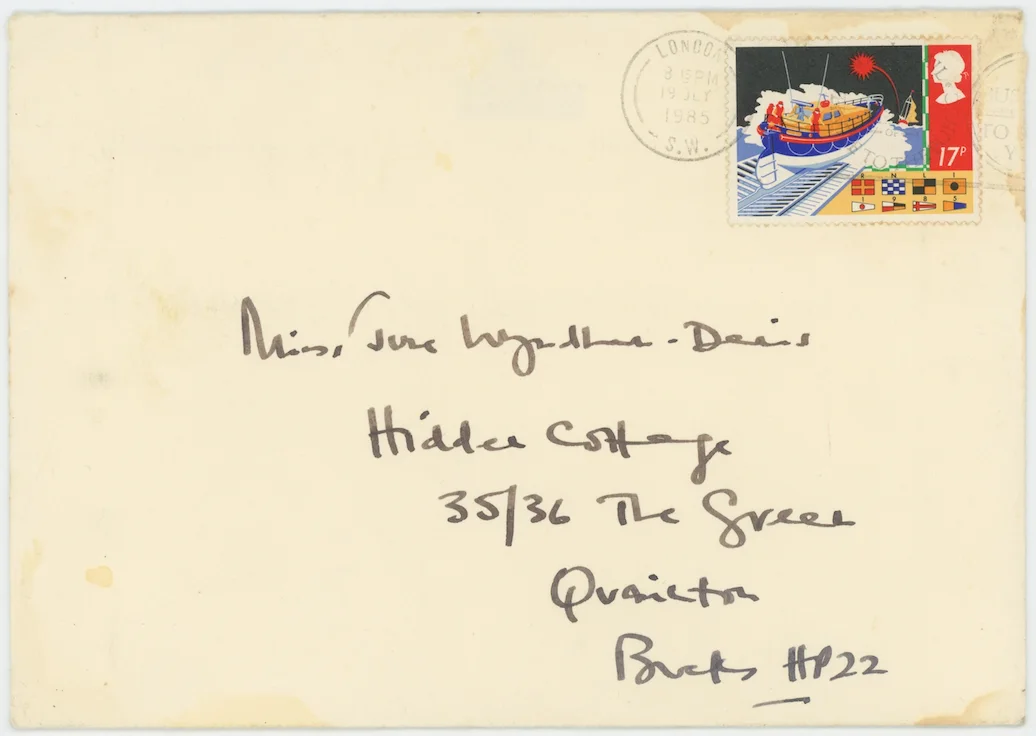 LONDON
8 15PM
19 JLY
1985
S.W.
17P
R N L I
1 9 8 5
TO
TO
Y
Miss Jane Wyndham-Davis
Hidden Cottage
35/36 The Green
Quainton
Bucks HP22